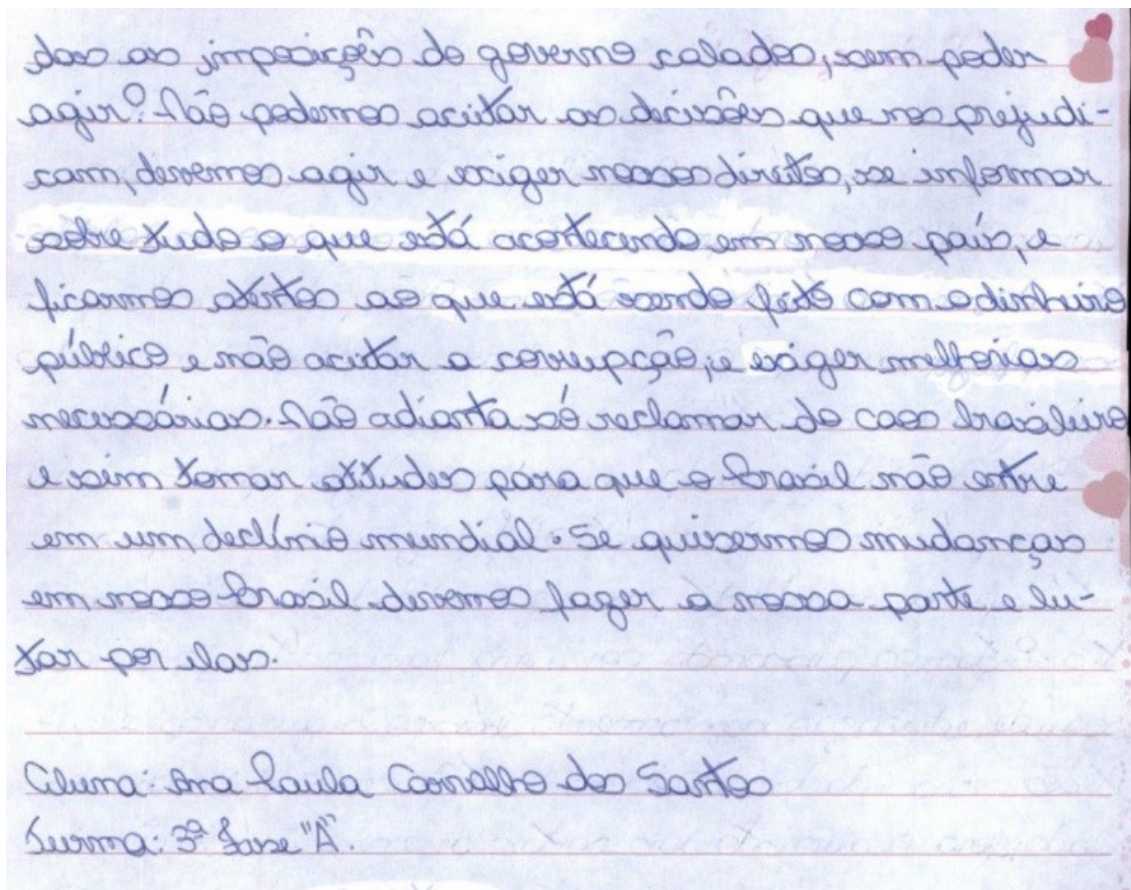 das as imposições do governo calados, sem poder
agir? Não podemos aceitar as decisões que nos prejudi-
cam, devemos agir e exiger nossos direitos, se informar
sobre tudo o que está acontecendo em nosso país, e
ficarmos atentos ao que está sendo feito com o dinheiro
público e não aceitar a corrupção, e exiger melhorias
necessárias. Não adianta só reclamar do caos brasileiro
e sim tomar atitudes para que o Brasil não entre
em um declínio mundial. Se quisermos mudanças
em nosso Brasil devemos fazer a nossa parte e lu-
tar por elas.
Aluna: Ana Paula Carvalho dos Santos
Turma: 3ª Fase "A".